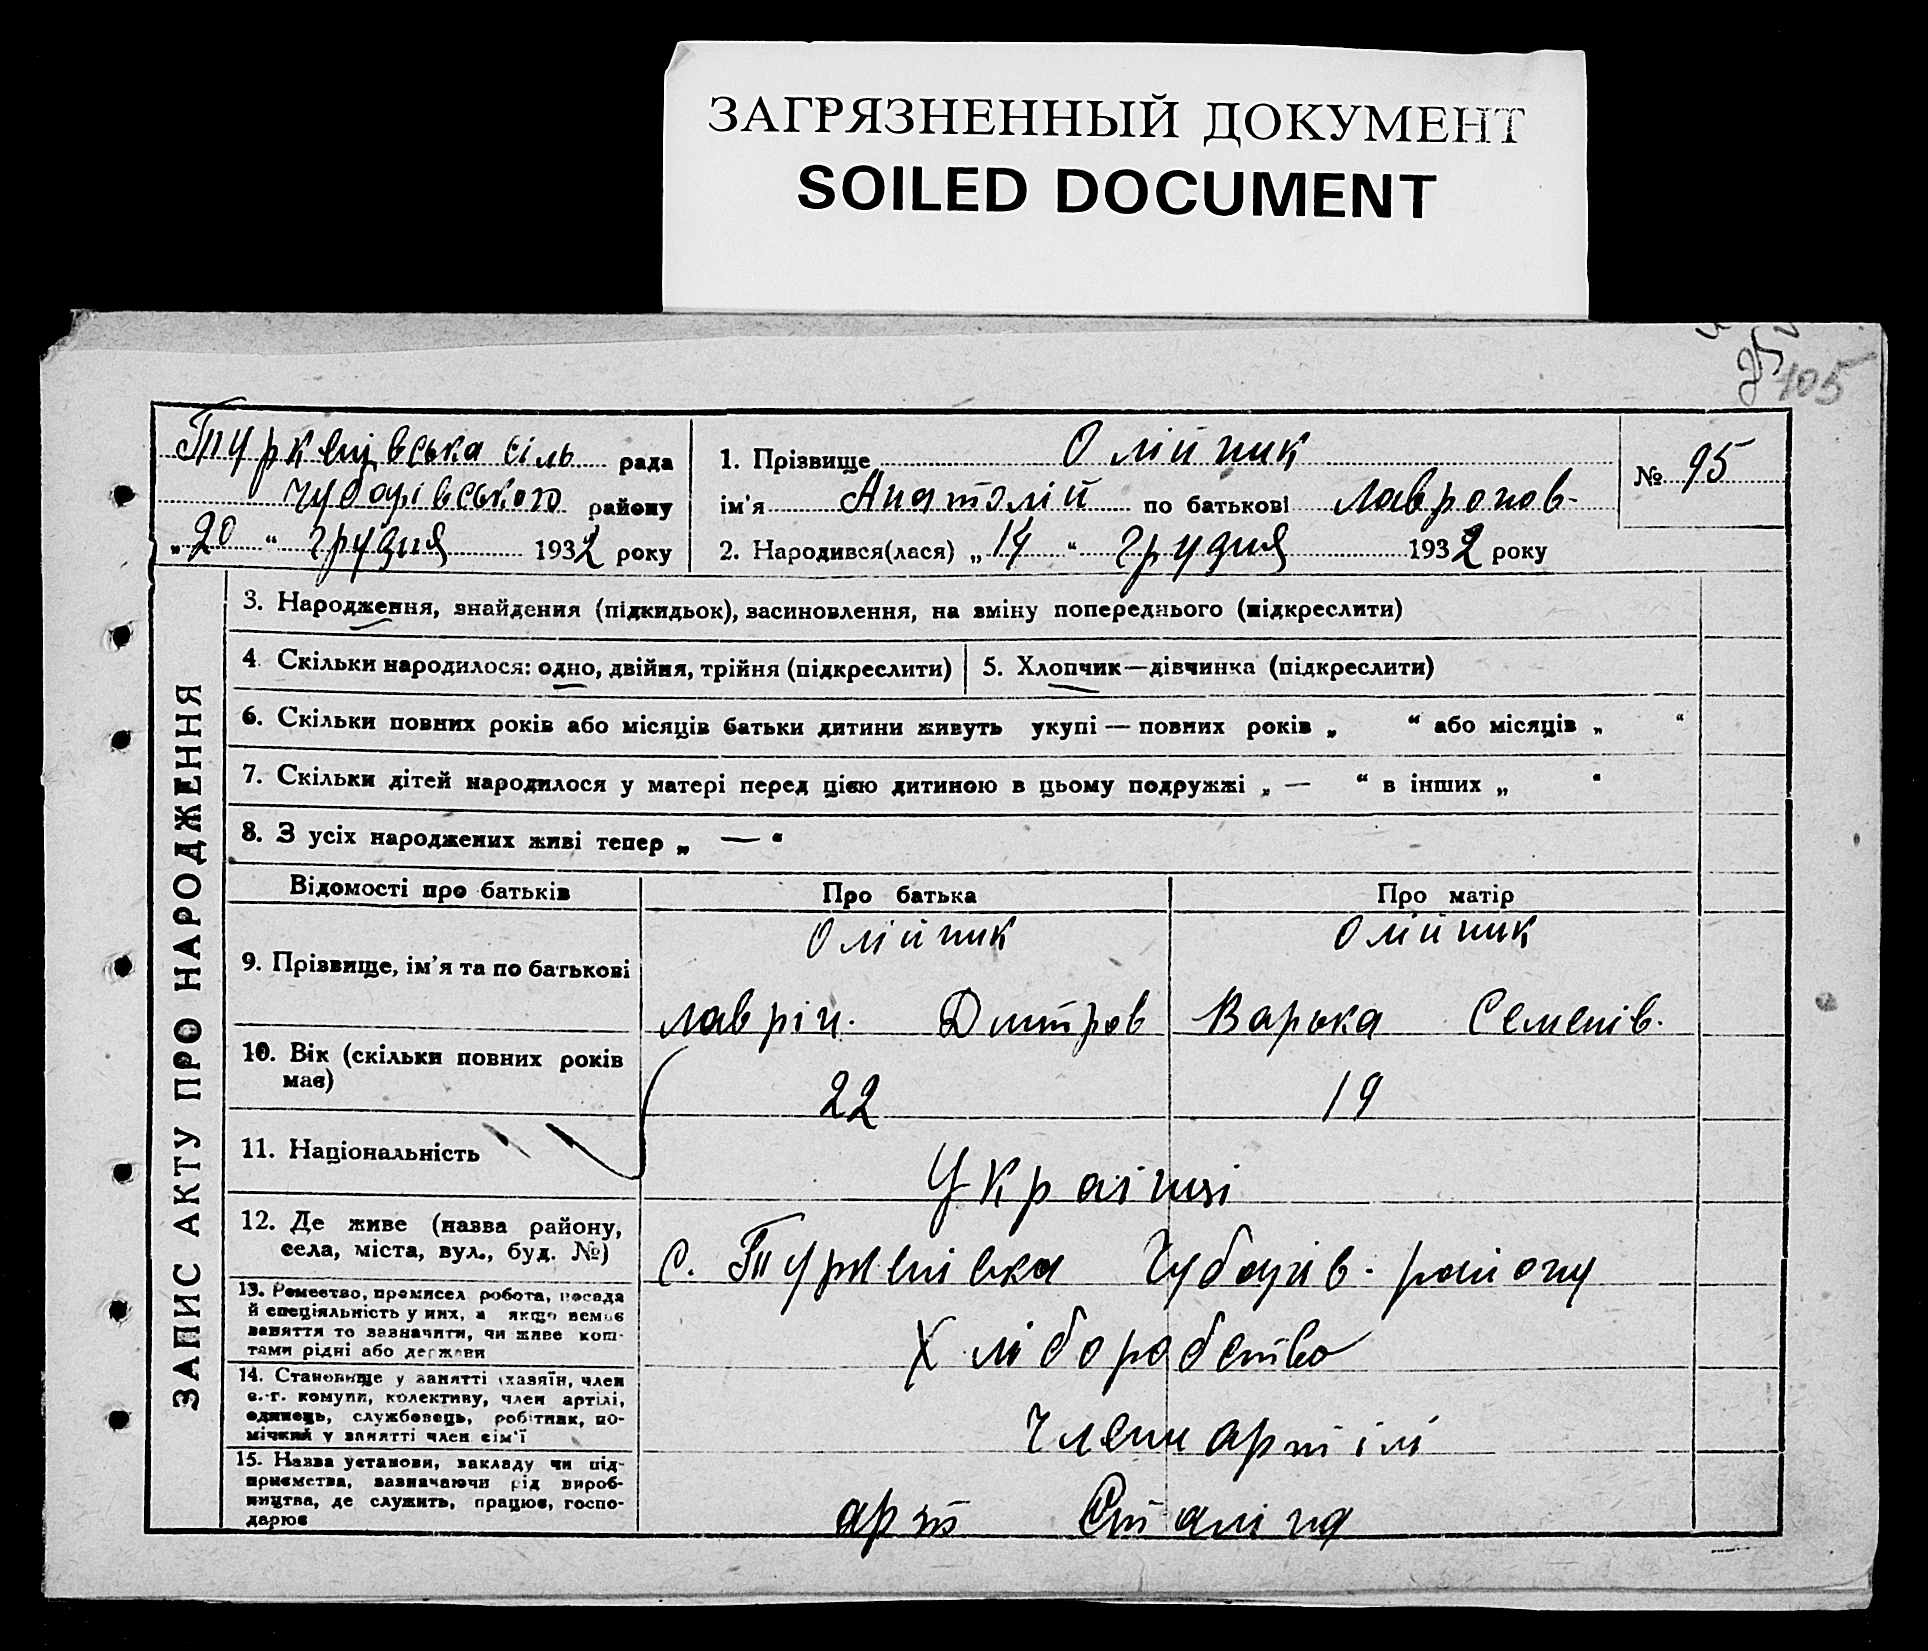 ЗАГРЯЗНЕННЫЙ ДОКУМЕНТ
SOILED DOCUMENT
105
Туркенівська сіль рада
Чубарівського району
„20“ грудня 1932 року
1. Прізвище Олійник
ім'я Анатолій по батькові Лавронов-
2. Народився(лася) „14“ грудня 1932 року
№ 95
ЗАПИС АКТУ ПРО НАРОДЖЕННЯ
3. Народження, знайдення (підкидьок), засиновлення, на зміну попереднього (підкреслити)
4. Скільки народилося: одно, двійня, трійня (підкреслити)
5. Хлопчик—дівчинка (підкреслити)
6. Скільки повних років або місяців батьки дитини живуть укупі — повних років „ “ або місяців „ “
7. Скільки дітей народилося у матері перед цією дитиною в цьому подружжі „ — “ в інших „ “
8. З усіх народжених живі тепер „ — “
Відомості про батьків
Про батька
Про матір
9. Прізвище, ім'я та по батькові
Олійник
Лаврін. Дмитров
Олійник
Варька Семенів.
10. Вік (скільки повних років
має)
22
19
11. Національність
Українці
12. Де живе (назва району,
села, міста, вул., буд. №)
с. Туркенівка Чубарів. району
13. Ремество, промисел робота, посада
й спеціяльність у них, а якщо немає
заняття то зазначити, чи живе кош-
тами рідні або держави
Хліборобство
14. Становище у занятті (хазяїн, член
с.-г. комуни, колективу, член артілі,
одинець, службовець, робітник, по-
мічний у занятті член сім'ї
Члени артілі
15. Назва установи, закладу чи під-
приємства, зазначаючи рід вироб-
ництва, де служить, працює, госпо-
дарює
арт Сталіна